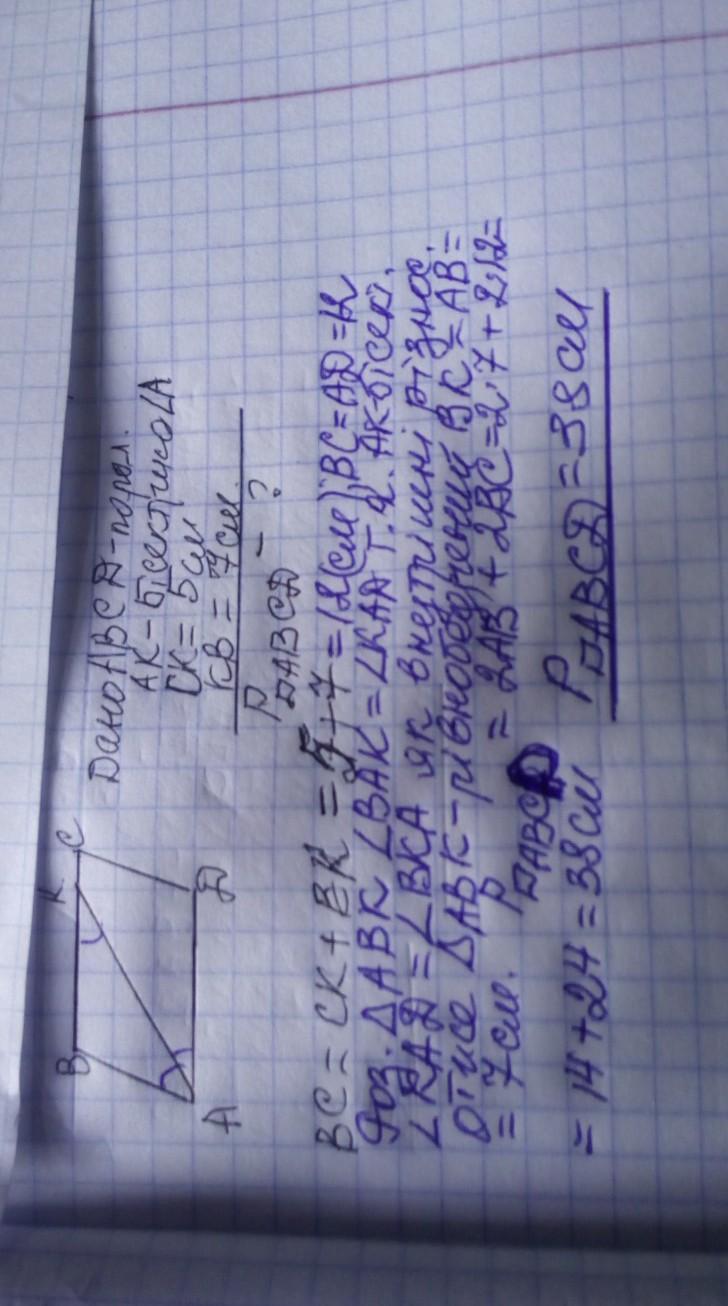 B K C
A D
Дано ABCD-парал.
AK-бісектриса ∠A
CK = 5см
KB = 7см.
P▱ABCD - ?
BC = CK + BK = 5+7 = 12(см) BC = AD = 12
Роз. ΔABK ∠BAK = ∠KAD т.я. AK-бісект.
∠KAD = ∠BKA як внутрішні різнос.
Отже ΔABK-рівнобедрений BK = AB =
= 7см. P▱ABCD = 2AB + 2BC = 2·7 + 2·12 =
= 14 + 24 = 38см P▱ABCD = 38см